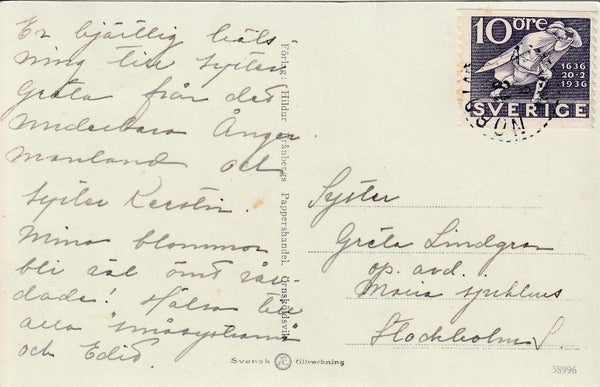 En hjärtlig häls-
ning till Syster
Greta från det
underbara Ånger-
manland och
Syster Kerstin.
Mina blommor
bli väl ömt vår-
dade! Hälsa till
alla "småsystrarna"
och Edid.
Förlag: Hildur Grånbergs Pappershandel, Örnsköldsvik
10 ÖRE
1636
20·2
1936
SVERIGE
NORR
Syster
Greta Lindgren
op. avd.
Maria sjukhus
Stockholm S.
Svensk Æ tillverkning
38996